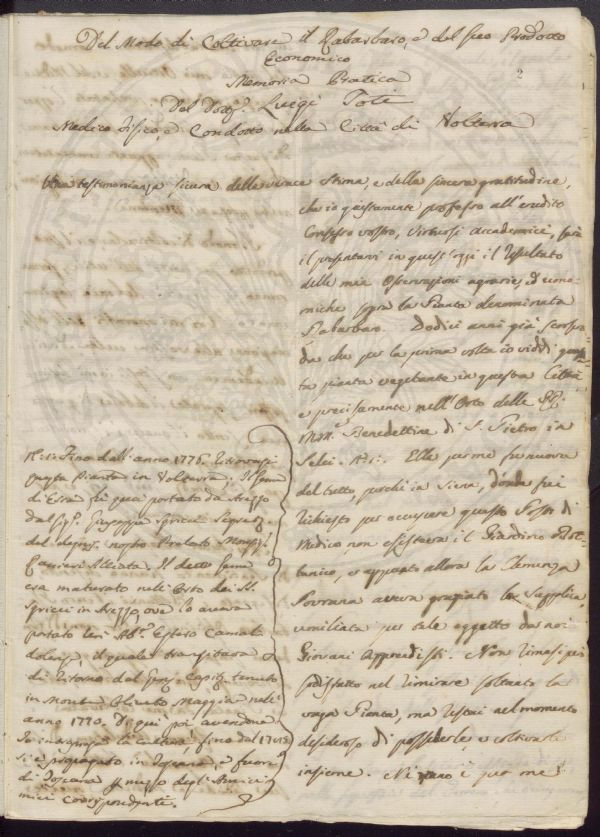 Del Modo di Coltivare il Rabarbaro, e del suo Prodotto
Economico
2
Memoria Pratica
Del Dott.r Luigi Toti
Medico Fisico, e Condotto nella Città di Volterra
Una testimonianza sicura della verace stima, e della sincera gratitudine,
che io giustamente professo all'erudito
Consesso vostro, virtuosi accademici, sia
il presentarvi in quest'oggi il resultato
delle mie Osservazioni agrarie, ed econo-
miche sopra la Pianta denominata
Rabarbaro. Dodici anni già scorsi
da che per la prima volta io viddi questa
pianta vegetante in questa Città
e precisamente nell'Orto delle RR.
MM.e Benedettine di S. Pietro in
Selci. Ella per me fu nuova
del tutto, perchè in Siena, donde fui
richiesto per occupare questo Posto di
Medico, non esisteva il Giardino Bot-
tanico, e appunto allora la Clemenza
Sovrana aveva graziato la supplica
umiliata per tale oggetto da noi
Giovani Apprendisti. Non rimasi poi
soddisfatto nel rimirare soltanto la
vaga Pianta, ma restai nel momento
desideroso di possederla, e coltivarla
insieme. Ni vano è per me
Fino dall'anno 1776. ritrovasi
questa Pianta in Volterra. Il seme
di Essa fu quà portato da Arezzo
dal Sig.r Giuseppe Segret.
del nostro Prelato Monsig.r
Alliata. Il detto seme
era maturato nell'Orto dei SS.
in Arezzo, ove lo aveva
portato un Ab.e Camal
dolense, il quale transitava
di ritorno dal Gen. Capit. tenuto
in Monte Oliveto Maggio nell'
anno 1770. Di quì poi avendone
la cultura fino dal
si è propagato in Toscana, e fuori
di Toscana p mezzo degl'Amici
miei Corrispondenti.